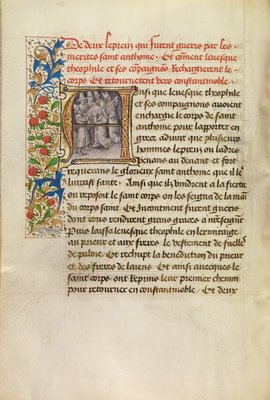 De deux lepreux qui furent gueris par les
merites saint anthome. Et cōment leuesque
theophile et ses compaignōs Rechargierent le
corps. Et retournerent vers constantinoble.
Ainsi que leuesque theophile
et ses compagnons auoient
enchargie le corps de saint
anthome pour lapporter en
aduent que plusieurs
hommes lepreux ou ladres
venans au deuant et fort
requerans le glorieux saint anthome que il le
luirast sante. Ainsi que ilz vindrent a la fiertre
ou reposoit le saint corps on les seigna de la main
du corps saint. Et Incontinent furent gueris
dont Ilz rendirent grans graces a nrē seignr̄
Puis laissa leuesque theophile en lermitaige
au prieur et aux freres le vestement de fueilles
de palme. Et rechupt la benediction du prieur
et des freres de laiens. Et ainsi auecques le
saint corps ont Reprins leur premier chemin
pour retourner en constantinoble. Et deux